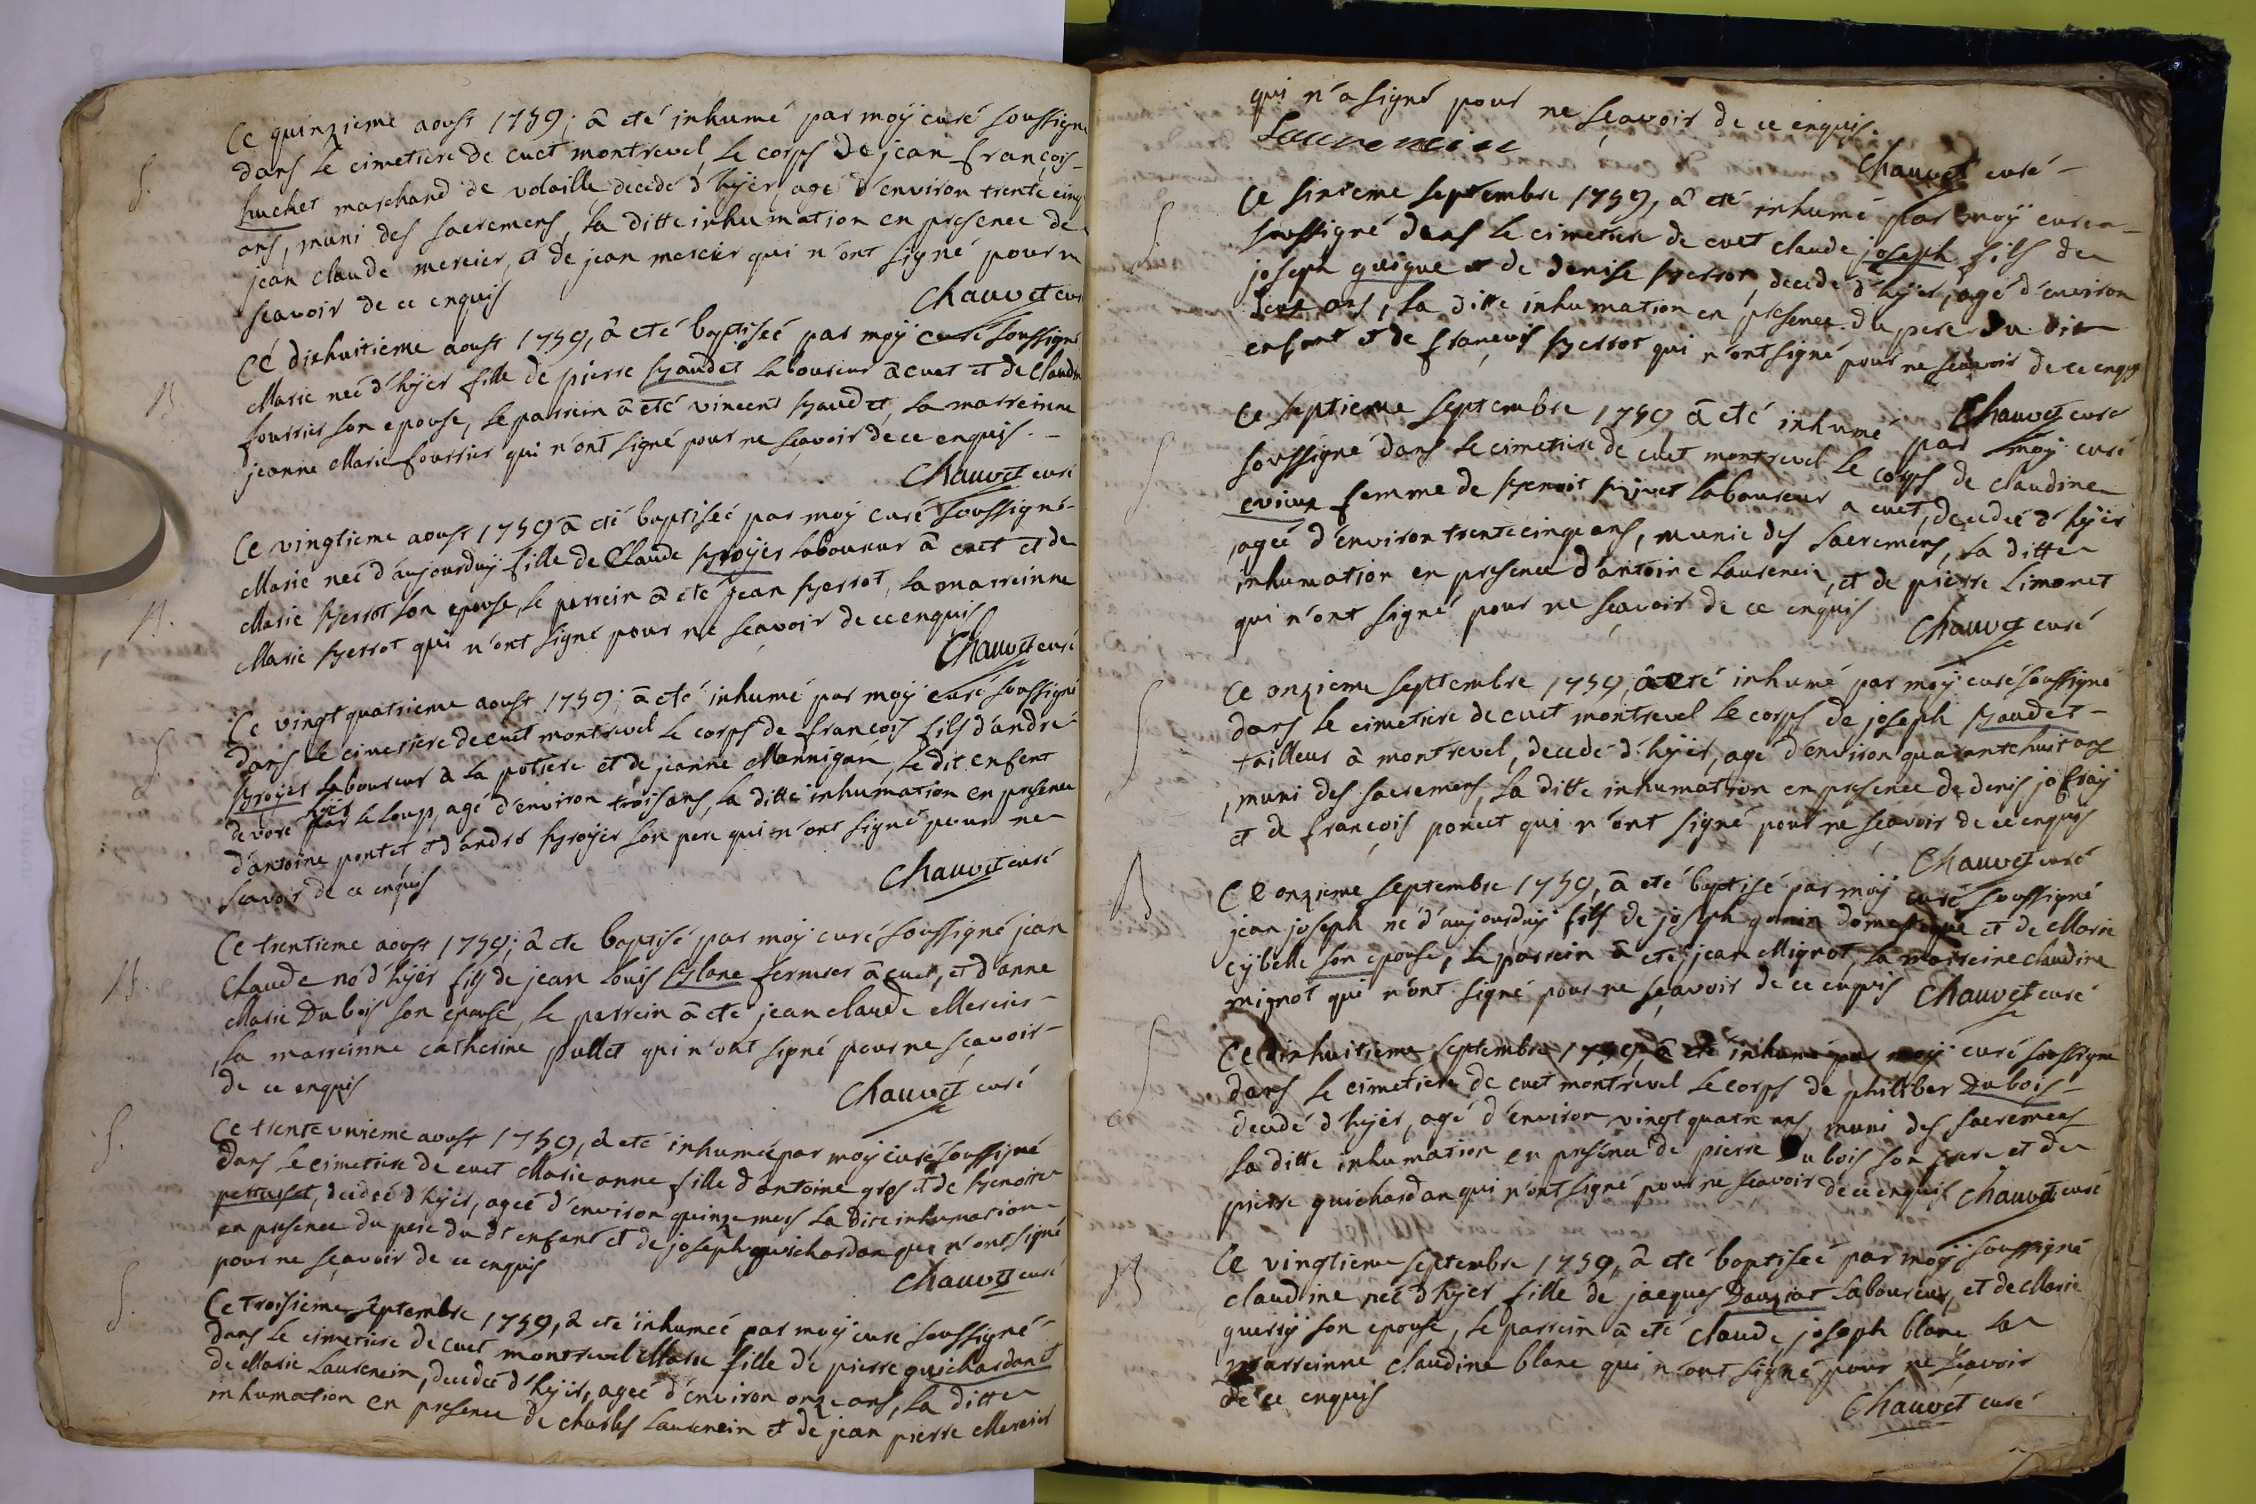 S.
Ce quinzieme aoust 1759; â eté inhumé par moÿ curé soussigné
dans le cimetiere de cuet montrevel le corps de jean françois
huchet marchand de volaille decedé d'hÿer agé d'environ trente cinq
ans, muni des sacremens, la ditte inhumation en presence de
jean claude mercier, et de jean mercier qui n'ont signé pour n
scavoir de ce enquis
Chauvet cur
B.
Ce dixhuitieme aoust 1759, â eté baptiseé par moÿ curé soussigné
Marie neé d'hÿer fille de pierre baudet laboureur â cuet et de Claudin
fourrier son epouse, le parrein â eté vincent baudet, la marreinne
jeanne Marie fourrier qui n'ont signé pour ne sçavoir de ce enquis.
Chauvet curé
B.
Ce vingtieme aoust 1759 â eté baptiseé par moÿ curé soussigné
Marie neé d'aujourduÿ fille de Claude broÿer laboureur â cuet et de
Marie berrot son epouse, le parrein â eté jean berrot, la marreinne
Marie berrot qui n'ont signé pour ne sçavoir de ce enquis
Chauvet curé
S.
Ce vingt quatrieme aoust 1759; â eté inhumé par moÿ curé soussigné
dans le cimetiere de cuet montrevel le corps de françois fils d'andré
broÿer laboureur â la potiere et de jeanne Mannigan, le dit enfent
devoré hÿer par le loup, agé d'environ trois ans, la ditte inhumation en presence
d'antoine pontet et d'andré broÿer son pere qui n'ont signé pour ne
scavoir de ce enquis
Chauvet curé
B.
Ce trentieme aoust 1759; â eté baptisé par moÿ curé soussigné jean
Claude né d'hÿer fils de jean louis blanc fermier â cuet, et d'anne
Marie Dubois son epouse, le parrein â eté jean claude Mercier
la marreinne catherine pullet qui n'ont signé pour ne sçavoir
de ce enquis
Chauvet curé
S.
Ce trente unieme aoust 1759, â eté inhumée par moÿ curé soussigné
dans le cimetiere de cuet Marie anne fille d'antoine gros et de benoite
perruset, decedeé d'hÿer, ageé d'environ quinze mois la dite inhumation
en presence du pere du dt enfant et de joseph guichardan qui n'ont signé
pour ne sçavoir de ce enquis
Chauvet curé
S.
Ce troisieme septembre 1759, â eté inhumeé par moÿ curé soussigné
dans le cimetiere de cuet montrevel Marie fille de pierre guichardan et
de Marie Laurencin, decedeé d'hÿer, ageé d'environ onze ans, la ditte
inhumation en presence de charles Laurencin et de jean pierre Mercier
qui n'a signé pour ne sçavoir de ce enquis.
Laurencin
Chauvet curé
S
Ce sixieme septembre 1759, â eté inhumé par moÿ curé
soussigné dans le cimetiere de cuet claude joseph fils de
joseph guigue et de denise berrot, decedé d'hÿer, agé d'environ
deux ans, la ditte inhumation en presence du pere du dit
enfant et de françois berrot qui n'ont signé pour ne scavoir de ce enquis
Chauvet curé
S
Ce septieme septembre 1759 â eté inhumé par moÿ curé
soussigné dans le cimetiere de cuet montrevel le corps de claudine
evieux femme de benoit bivet laboureur a cuet, decedeé d'hÿer
ageé d'environ trente cinq ans, munie des sacremens, la ditte
inhumation en presence d'antoine Laurencin, et de pierre Limonet
qui n'ont signé pour ne sçavoir de ce enquis
Chauvet curé
S
Ce onzieme septembre 1759, â eté inhumé par moÿ curé soussigné
dans le cimetiere de cuet montrevel le corps de joseph baudet
tailleur â montrevel, decedé d'hÿer, agé d'environ quarante huit ans
muni des sacremens, la ditte inhumation en presence de denis jofraÿ
et de françois poncet qui n'ont signé pour ne sçavoir de ce enquis
Chauvet curé
B
Ce onzieme septembre 1759, â eté baptisé par moÿ curé soussigné
jean joseph né d'aujourduÿ fils de joseph domestique et de Marie
cÿbelle son epouse, le parrein â eté jean Mignot, la marreine claudine
mignot qui n'ont signé pour ne sçavoir de ce enquis
Chauvet curé
S
Ce dixhuitieme septembre 1759, â eté inhumé par moÿ curé soussigné
dans le cimetiere de cuet montrevel le corps de philiber Dubois
decedé d'hÿer, agé d'environ vingt quatre ans, muni des sacremens
la ditte inhumation en presence de pierre Dubois son frere et de
pierre guichardan qui n'ont signé pour ne scavoir de ce enquis Chauvet curé
B
Ce vingtieme septembre 1759, â eté baptiseé par moÿ soussigné
claudine neé d'hÿer fille de jacques Dauziat laboureur, et de Marie
guerrÿ son epouse, le parrein â eté claude joseph blanc la
marreinne claudine blanc qui n'ont signé pour ne sçavoir
de ce enquis
Chauvet curé